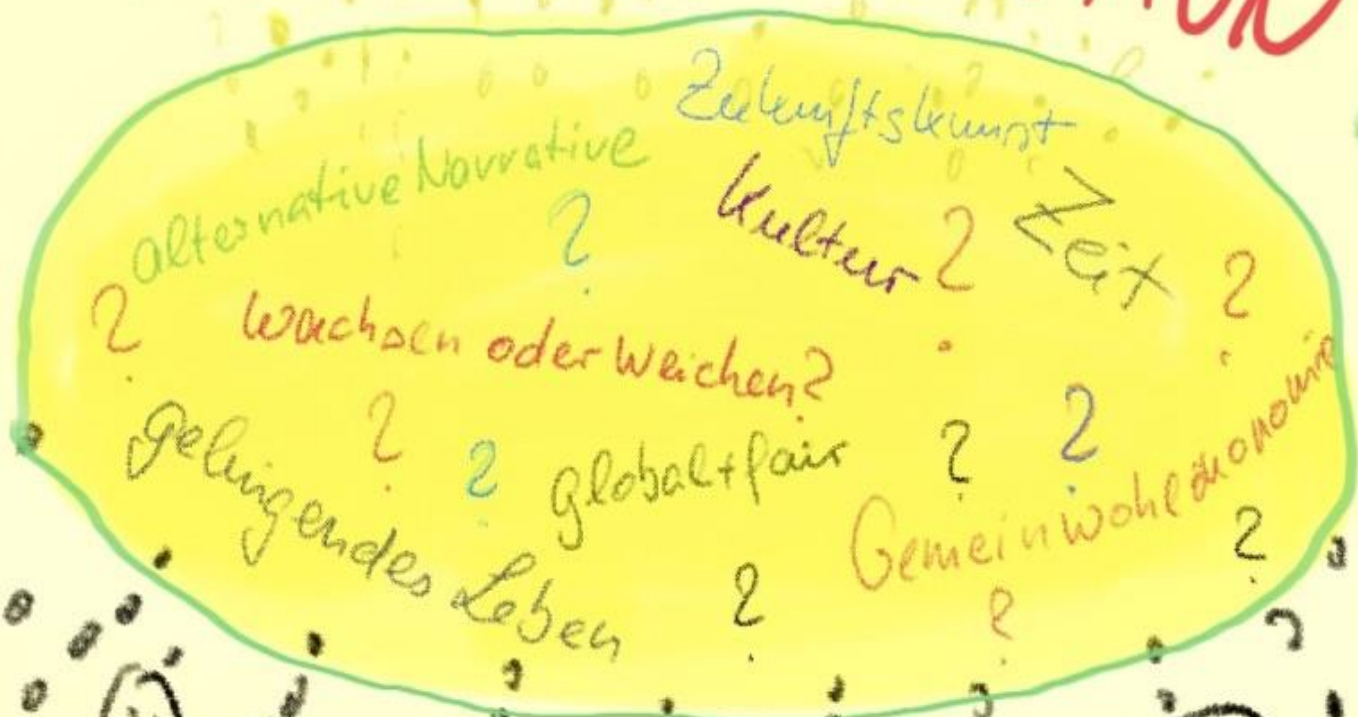 Zukunftskunst
alternative Narrative
?
Kultur ?
Zeit
?
?
wachsen oder Weichen?
gelingendes Leben
?
?
global+fair
?
?
Gemeinwohlökonomie
?
?
?